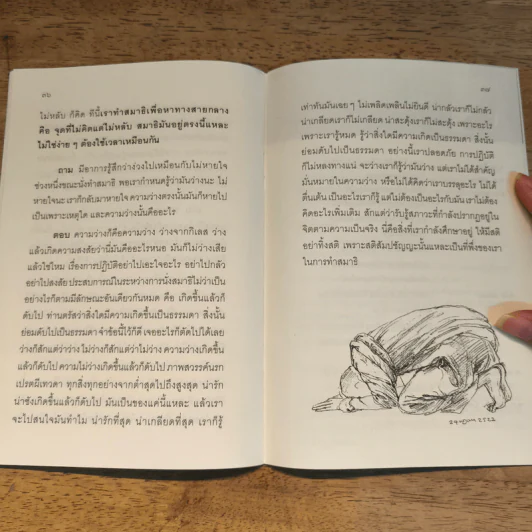 ๓๖
ไม่หลับ ก็คิด ทีนี้เราทำสมาธิเพื่อหาทางสายกลาง
คือ จุดที่ไม่คิดแต่ไม่หลับ สมาธิมันอยู่ตรงนี้แหละ
ไม่ใช่ง่าย ๆ ต้องใช้เวลาเหมือนกัน
ถาม มีอาการรู้สึกว่าง่วงไปเหมือนกับไม่หายใจ
ช่วงหนึ่งขณะนั่งทำสมาธิ พอเรากำหนดรู้ว่ามันว่างนะ ไม่
หายใจนะ เราก็กลับมาหายใจ ความว่างตรงนั้นมันก็หายไป
เป็นเพราะเหตุใด และความว่างนั้นคืออะไร
ตอบ ความว่างก็คือความว่าง ว่างจากกิเลส ว่าง
แล้วเกิดความสงสัยว่านี่มันคืออะไรหนอ มันก็ไม่ว่างเสีย
แล้วใช่ไหม เรื่องการปฏิบัติอย่าไปเอะใจอะไร อย่าไปกลัว
อย่าไปสงสัย ประสบการณ์ในระหว่างการนั่งสมาธิไม่ว่าเป็น
อย่างไรก็ตามมีลักษณะอันเดียวกันหมด คือ เกิดขึ้นแล้วก็
ดับไป ท่านตรัสว่าสิ่งใดมีความเกิดขึ้นเป็นธรรมดา สิ่งนั้น
ย่อมดับไปเป็นธรรมดา จำข้อนี้ไว้ก็ดี เจออะไรก็ตัดไปได้เลย
ว่างก็สักแต่ว่าว่าง ไม่ว่างก็สักแต่ว่าไม่ว่าง ความว่างเกิดขึ้น
แล้วก็ดับไป ความไม่ว่างเกิดขึ้นแล้วก็ดับไป ภาพสวรรค์นรก
เปรตผีเทวดา ทุกสิ่งทุกอย่างจากต่ำสุดไปถึงสูงสุด น่ารัก
น่าชังเกิดขึ้นแล้วก็ดับไป มันเป็นของแค่นี้แหละ แล้วเรา
จะไปสนใจมันทำไม น่ารักที่สุด น่าเกลียดที่สุด เราก็รู้
๓๗
เท่าทันมันเฉย ๆ ไม่เพลิดเพลินไม่ยินดี น่ากลัวเราก็ไม่กลัว
น่าเกลียดเราก็ไม่เกลียด น่าสะดุ้งเราก็ไม่สะดุ้ง เพราะอะไร
เพราะเรารู้หมด รู้ว่าสิ่งใดมีความเกิดเป็นธรรมดา สิ่งนั้น
ย่อมดับไปเป็นธรรมดา อย่างนี้เราปลอดภัย การปฏิบัติ
ก็ไม่หลงทางแน่ จะว่างเราก็รู้ว่ามันว่าง แต่เราไม่ได้สำคัญ
มั่นหมายในความว่าง หรือไม่ได้คิดว่าเราบรรลุอะไร ไม่ได้
ตื่นเต้น เป็นอะไรเราก็รู้ แต่ไม่ต้องเป็นอะไรกับมัน เราไม่ต้อง
คิดอะไรเพิ่มเติม สักแต่ว่ารับรู้สภาวะที่กำลังปรากฏอยู่ใน
จิตตามความเป็นจริง นี่คือสิ่งที่เรากำลังศึกษาอยู่ ให้มีสติ
อย่าทิ้งสติ เพราะสติสัมปชัญญะนั้นแหละเป็นที่พึ่งของเรา
ในการทำสมาธิ